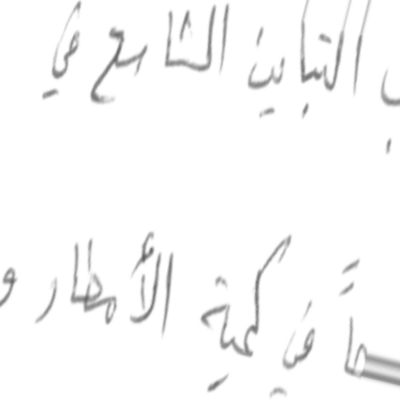 التباين الشاسع في
في كمية الأمطار و